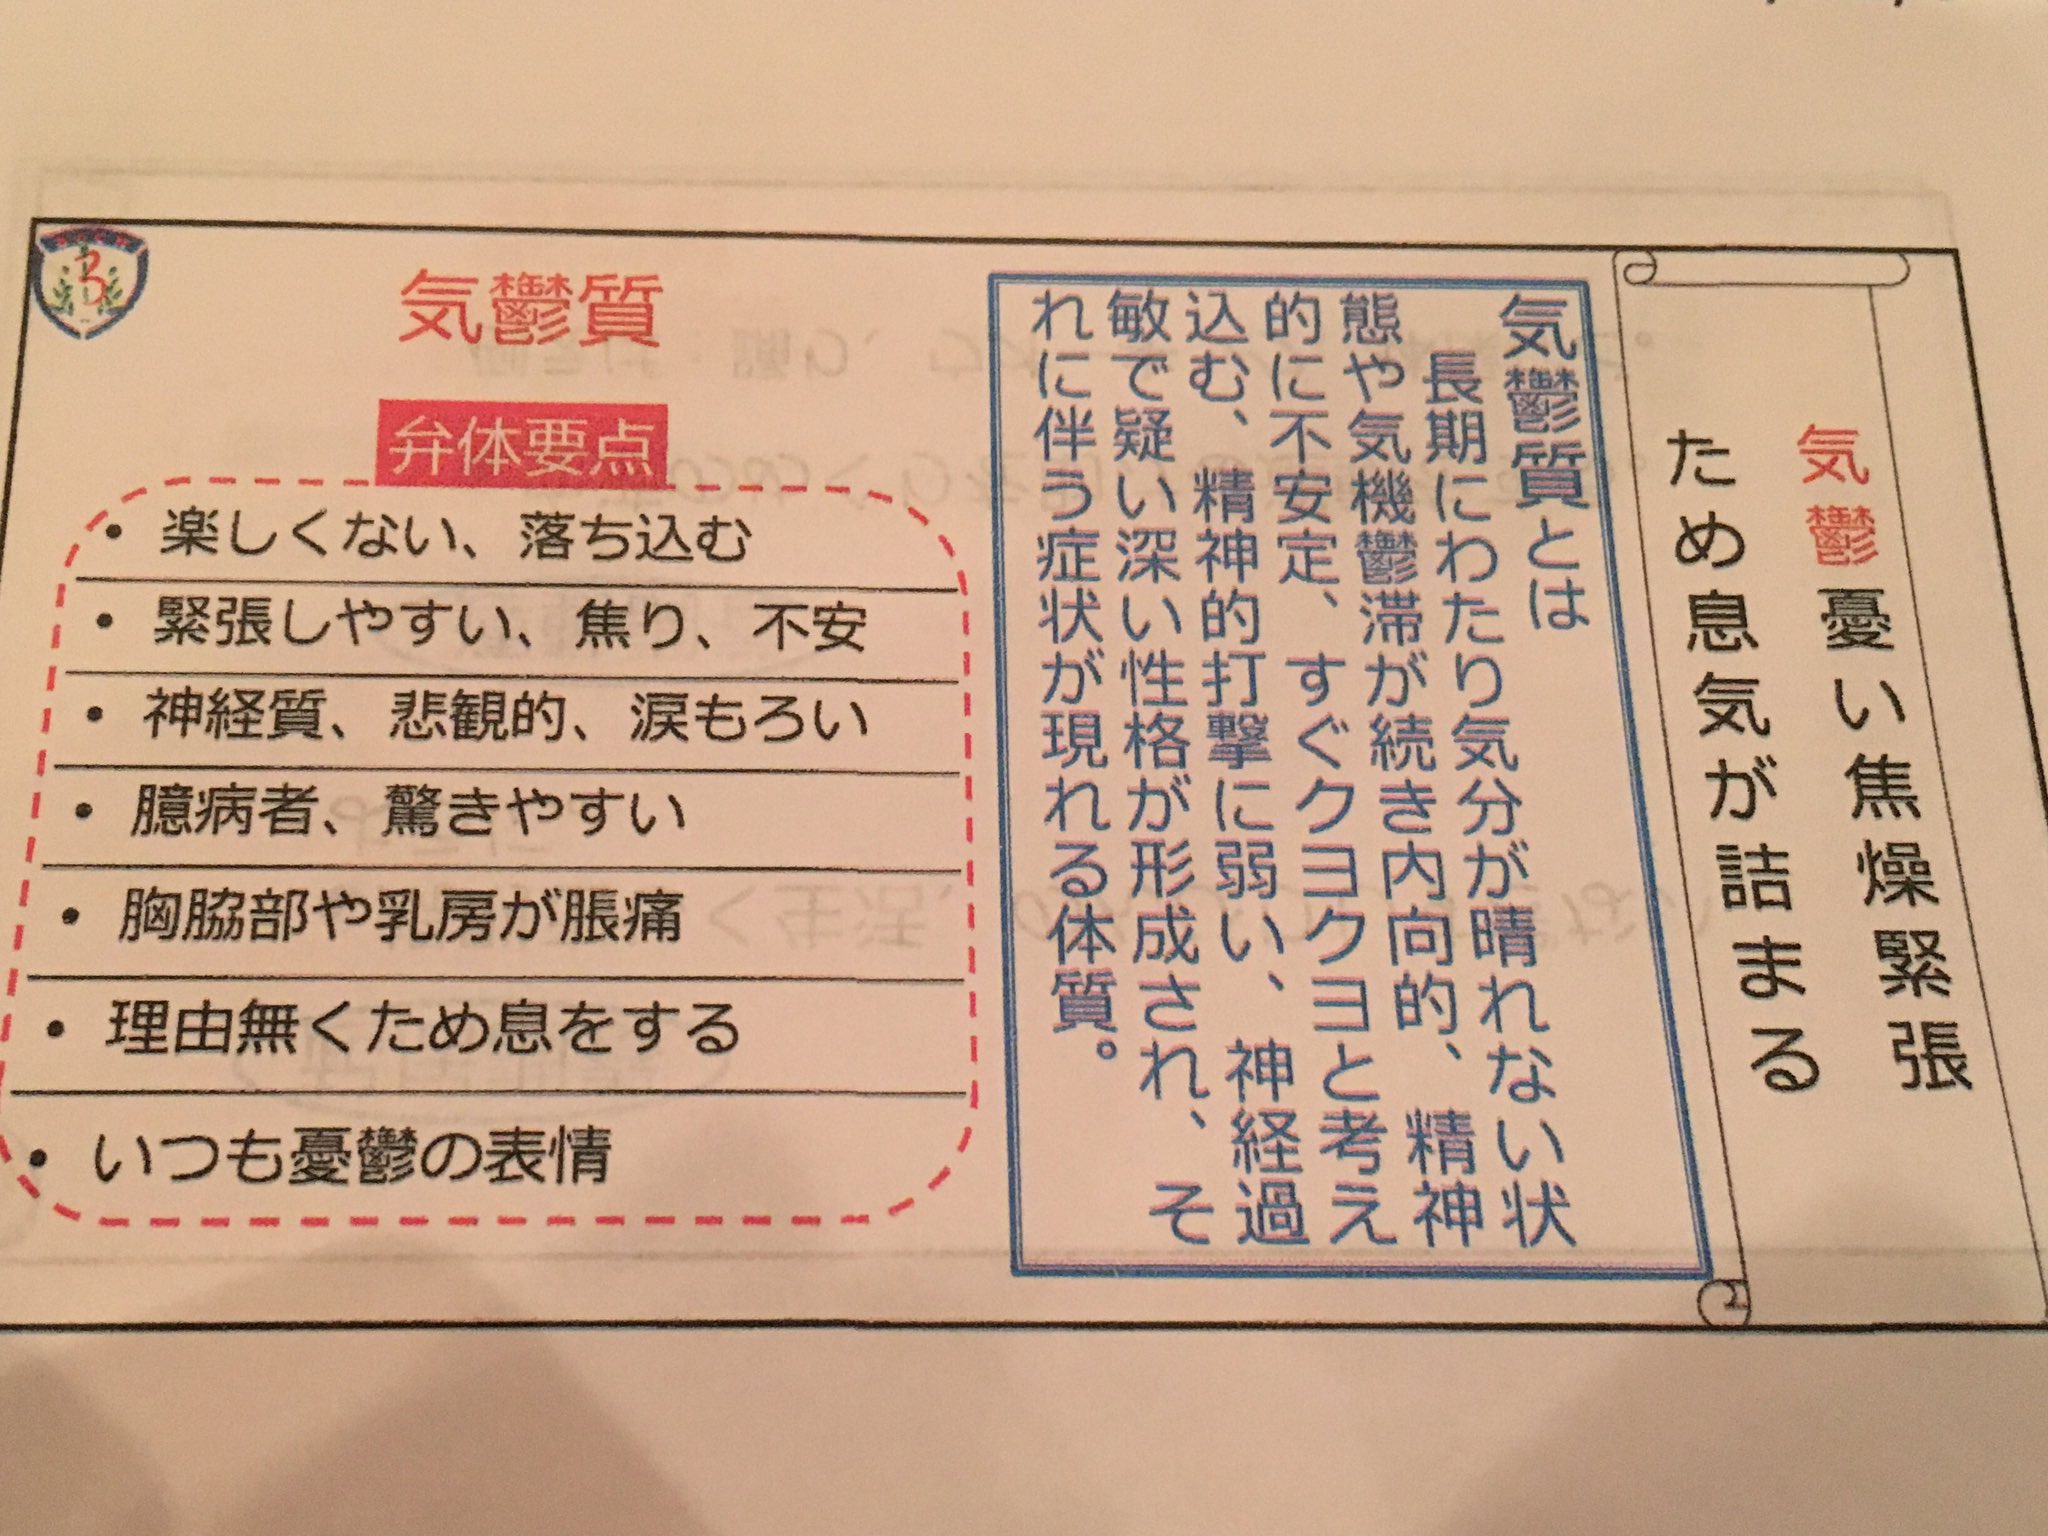 気鬱憂い焦燥緊張
ため息気が詰まる
気鬱質とは
長期にわたり気分が晴れない状
態や気機鬱滞が続き内向的、精神
的に不安定、すぐクヨクヨと考え
込む、精神的打撃に弱い、神経過
敏で疑い深い性格が形成され、そ
れに伴う症状が現れる体質。
気鬱質
弁体要点
• 楽しくない、落ち込む
• 緊張しやすい、焦り、不安
• 神経質、悲観的、涙もろい
• 臆病者、驚きやすい
• 胸脇部や乳房が脹痛
• 理由無くため息をする
• いつも憂鬱の表情